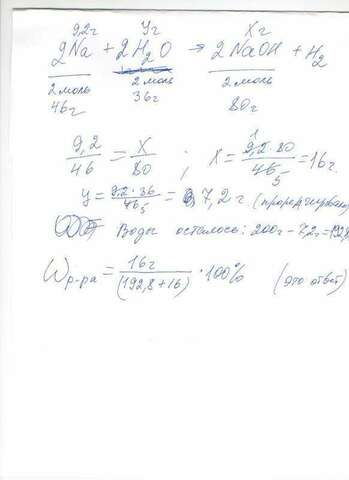 9,2г уг хг
2Na + 2H₂O → 2NaOH + H₂
2моль 2моль 2моль
46г 36г 80г
9,2/46 = x/80 ; x = 9,2·80/46 = 16г.
y = 9,2·36/46 = 7,2г. (прореагировало)
Воды осталось: 200г - 7,2г = 192,8
Wр-ра = 16г/(192,8+16) · 100% (это ответ)